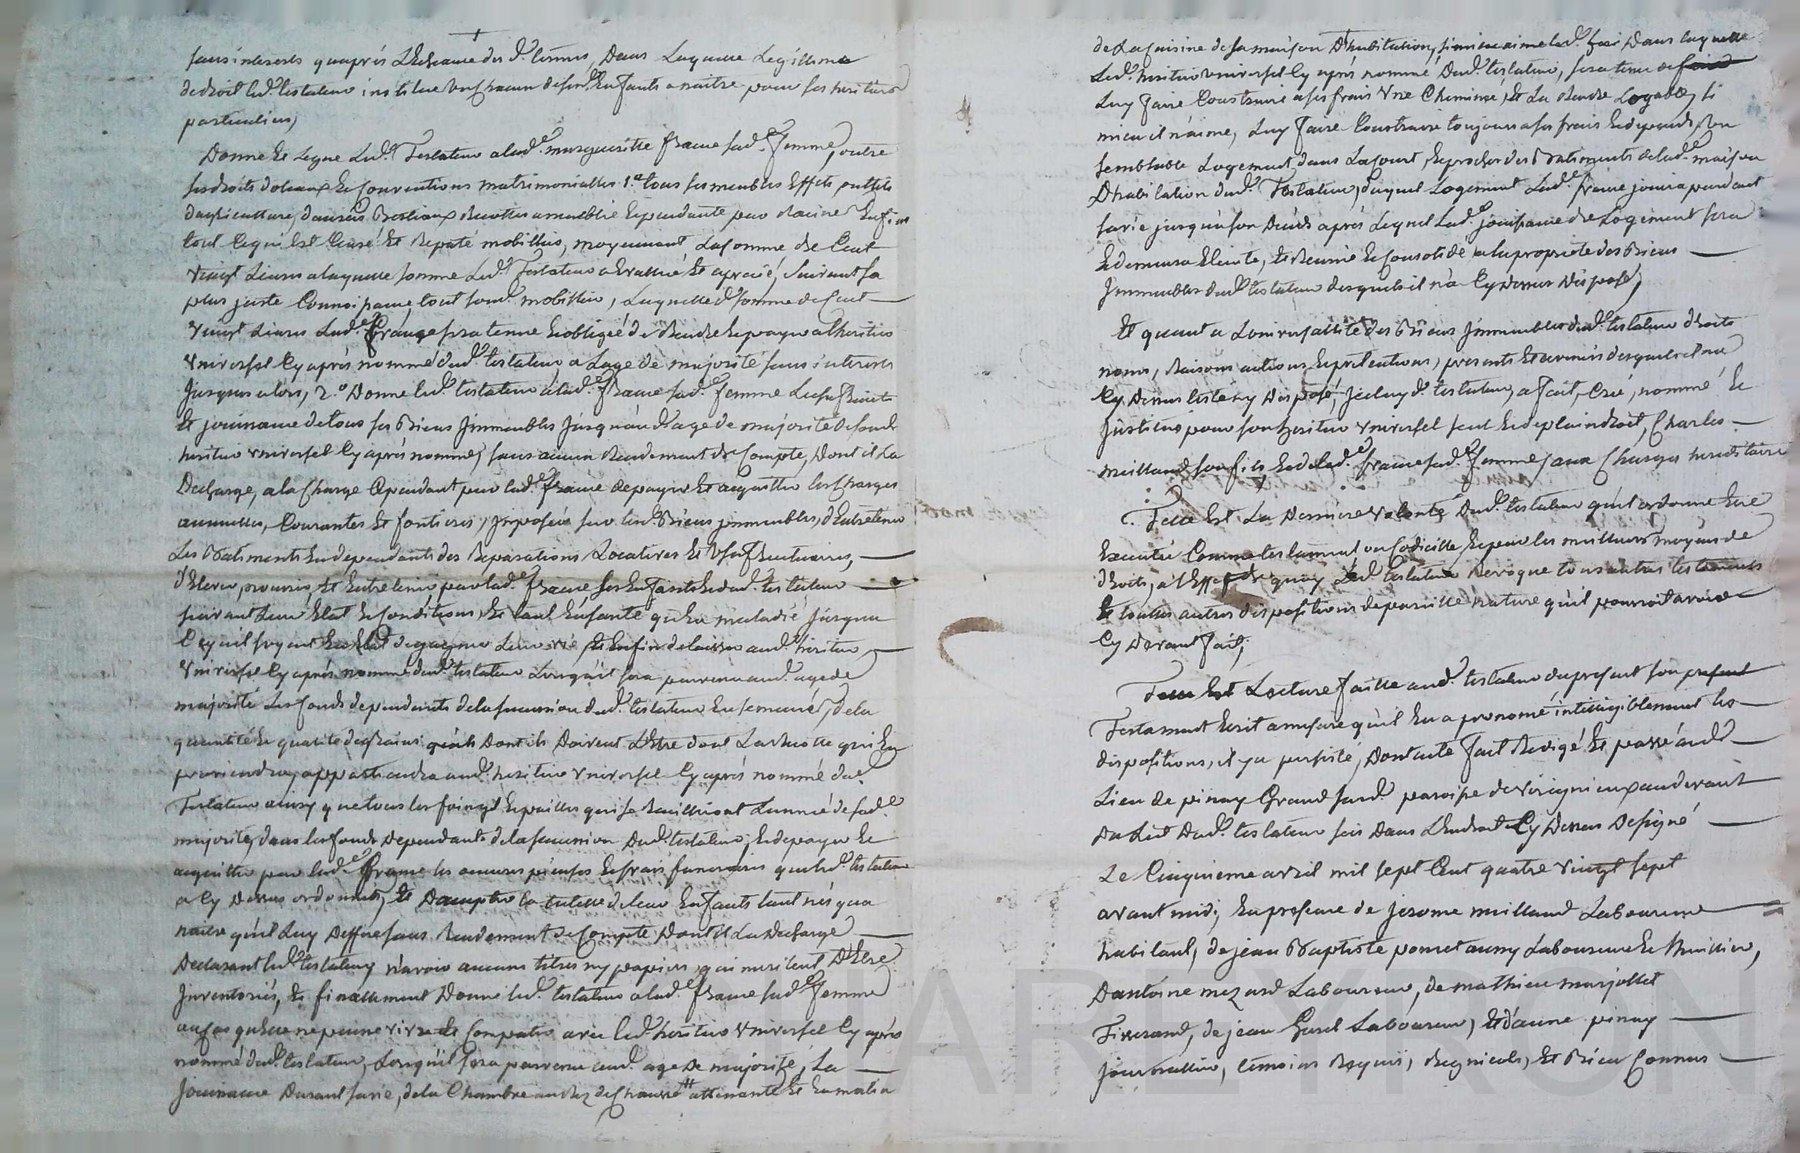 sans interests qu'après l'échéance des d. termes, dans laquelle légitime
de droit led. testateur institue un chacun desesd. Enfants a naitre pour ses heritiers
particuliers,
Donne et legue led. Testateur a lad. margueritte frame sad. femme, outre
ses droits dotaux et conventions matrimonialles 1.° tous ses meubles Effets outils
dagriculture, danrées Bestiaux Recoltes ameublie et pendante par Racine Enfin
tout ce qui Est Censé et Reputé mobillier, moyennant la somme de Cent
vingt Livres a laquelle somme led. Testateur a Evallué et aprecié, suivant sa
plus juste Connoissance tout sond. mobillier, laquelle d. somme de Cent
vingt Livres lad. frame sera tenue et obligée de Rendre et payer a lheritier
universel Cy après nommé dud. testateur a Lage de majorité sans interests
Jusques alors, 2.° Donne led. testateur a lad. frame sad. femme
et jouissance de tous ses Biens Immeubles Jusqu'au d. age de majorité de sond.
heritier universel Cy après nommé, sans aucun Rendement de Compte, Dont il la
Decharge, a la Charge Cependant par lad. frame de payer et acquitter les Charges
annuelles, Courantes et foncieres, Imposées sur lesd. Biens immeubles, d'Entretenir
Les Batiments En dependants des Reparations Locatives et Usufructuaires,
d'Elever, nourrir, et Entretenir par lad. frame ses Enfants et dud. testateur
suivant leur Etat et conditions, et tant En santé qu'En maladie Jusqu'a
Ce qu'il soyent En Etat de gagner Leur vie, et Enfin delaisser aud. heritier
universel Cy après nommé dud. testateur Lorsqu'il sera parvenu aud. age de
majorité Les fonds dependants de la succession dud. testateur Ensemencés, de la
quantité et qualité des grains Dont ils Doivent L'Etre dont La Recolte qui En
proviendra appartiendra aud. heritier universel Cy après nommé dud.
Testateur ainsy que tous les foings et pailles qui se Recuilliront L'année de sad.
majorité, dans les fonds Dependants de la succession Dud. testateur, et de payer et
acquitter par lad. frame les œuvres pieuses et frais funeraires que led. testateur
a Cy Dessus ordonnés, et D'accepter la tutelle de leurs Enfants tant nés qu'a
naitre qu'il Luy Deffere sans Rendement de Compte, Dont il La Decharge
Declarant led. testateur n'avoir aucuns titres ny papiers qui meritent D'Etre
Inventoriés, et finallement Donne led. testateur a lad. frame sad. femme
au Cas qu'Elle ne puisse vivre et Compatir avec led. heritier universel Cy après
nommé dud. testateur, Lorsqu'il sera parvenu aud. age de majorité, La
Jouissance Durant sa vie, de la Chambre au Rez de Chaussé attenante Et En matin
de La cuisine de sa maison D'habitation, si mieux aime lad. dans laquelle
Led. heritier universel Cy après nommé Dud. testateur, sera tenu de
Luy faire Construire a ses frais une Cheminée, et La Rendre Logable, si
mieux il n'aime, Luy faire Construire toujours a ses frais et depends, un
semblable Logement dans La Court, et proche des Batiments de lad. maison
D'habitation dud. Testateur, duquel Logement Lad. frame jouira pendant
sa vie jusqu'a son Décès après Lequel Lad. jouissance de Logement sera
et demeurera Eteinte, et Reunie et Consolidée a la proprieté des Biens
Immeubles dud. testateur desquels il n'a Cy Dessus Disposé,
Et quant a Luniversallité des Biens Immeubles dud. testateur droits
noms, Raisons actions et prétentions, presents et avenirs desquels il n'a
Cy Dessus testé ny Disposé, Jceluy d. testateur, a fait, Créé, nommé et
Jnstitué pour son heritier universel seul et de plein droit, Charles
meilland son fils et de lad. frame sad. femme aux Charges hereditaires
Telle Est La Derniere volonté Dud. testateur qu'il ordonne Etre
Executée Comme testament ou Codicille, et par les meilleurs moyens de
droits, a l'Effet de quoy Led. testateur revoque tous autres testaments
et toutes autres dispositions de pareille nature qu'il pourroit avoir
Cy Devant fait;
Lecture faitte aud. testateur du present son present
Testament Ecrit a mesure qu'il En a prononcé intelligiblement les
dispositions, il y a persisté, Dont acte fait Redigé et passé aud.
Lieu de pinay Grand jard. paroisse de au devant
Du Lit Dud. testateur sis Dans L'Endroit Cy Dessus Designé
Le Cinquieme avril mil sept Cent quatre vingt sept
avant midi, En presence de jerome meilland Laboureur
habitant, de jean Baptiste poncet aussy Laboureur et Huillier,
D'antoine mezard Laboureur, de mathieu marjollet
Tisserand, de jean Laboureur, et d'anne pinay
journallier, temoins Requis, Regnicols, et Bien Connus